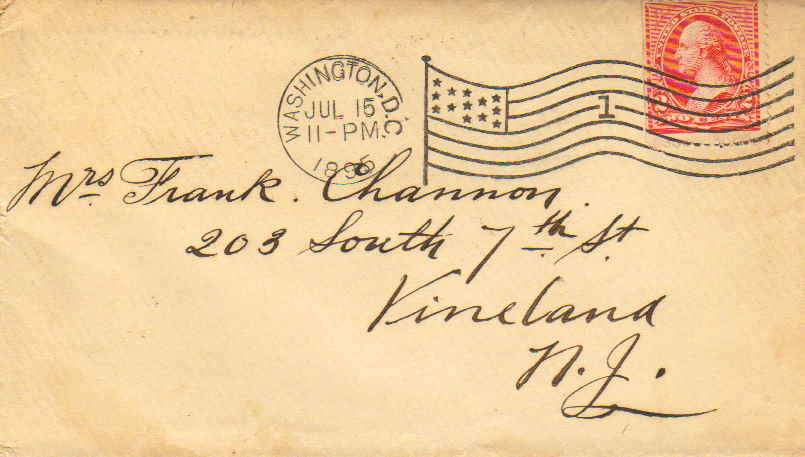 WASHINGTON, D.C.
JUL 15
11-PM
1895
1
Mrs Frank. Channon.
203 South 7th St
Vineland
N. J.